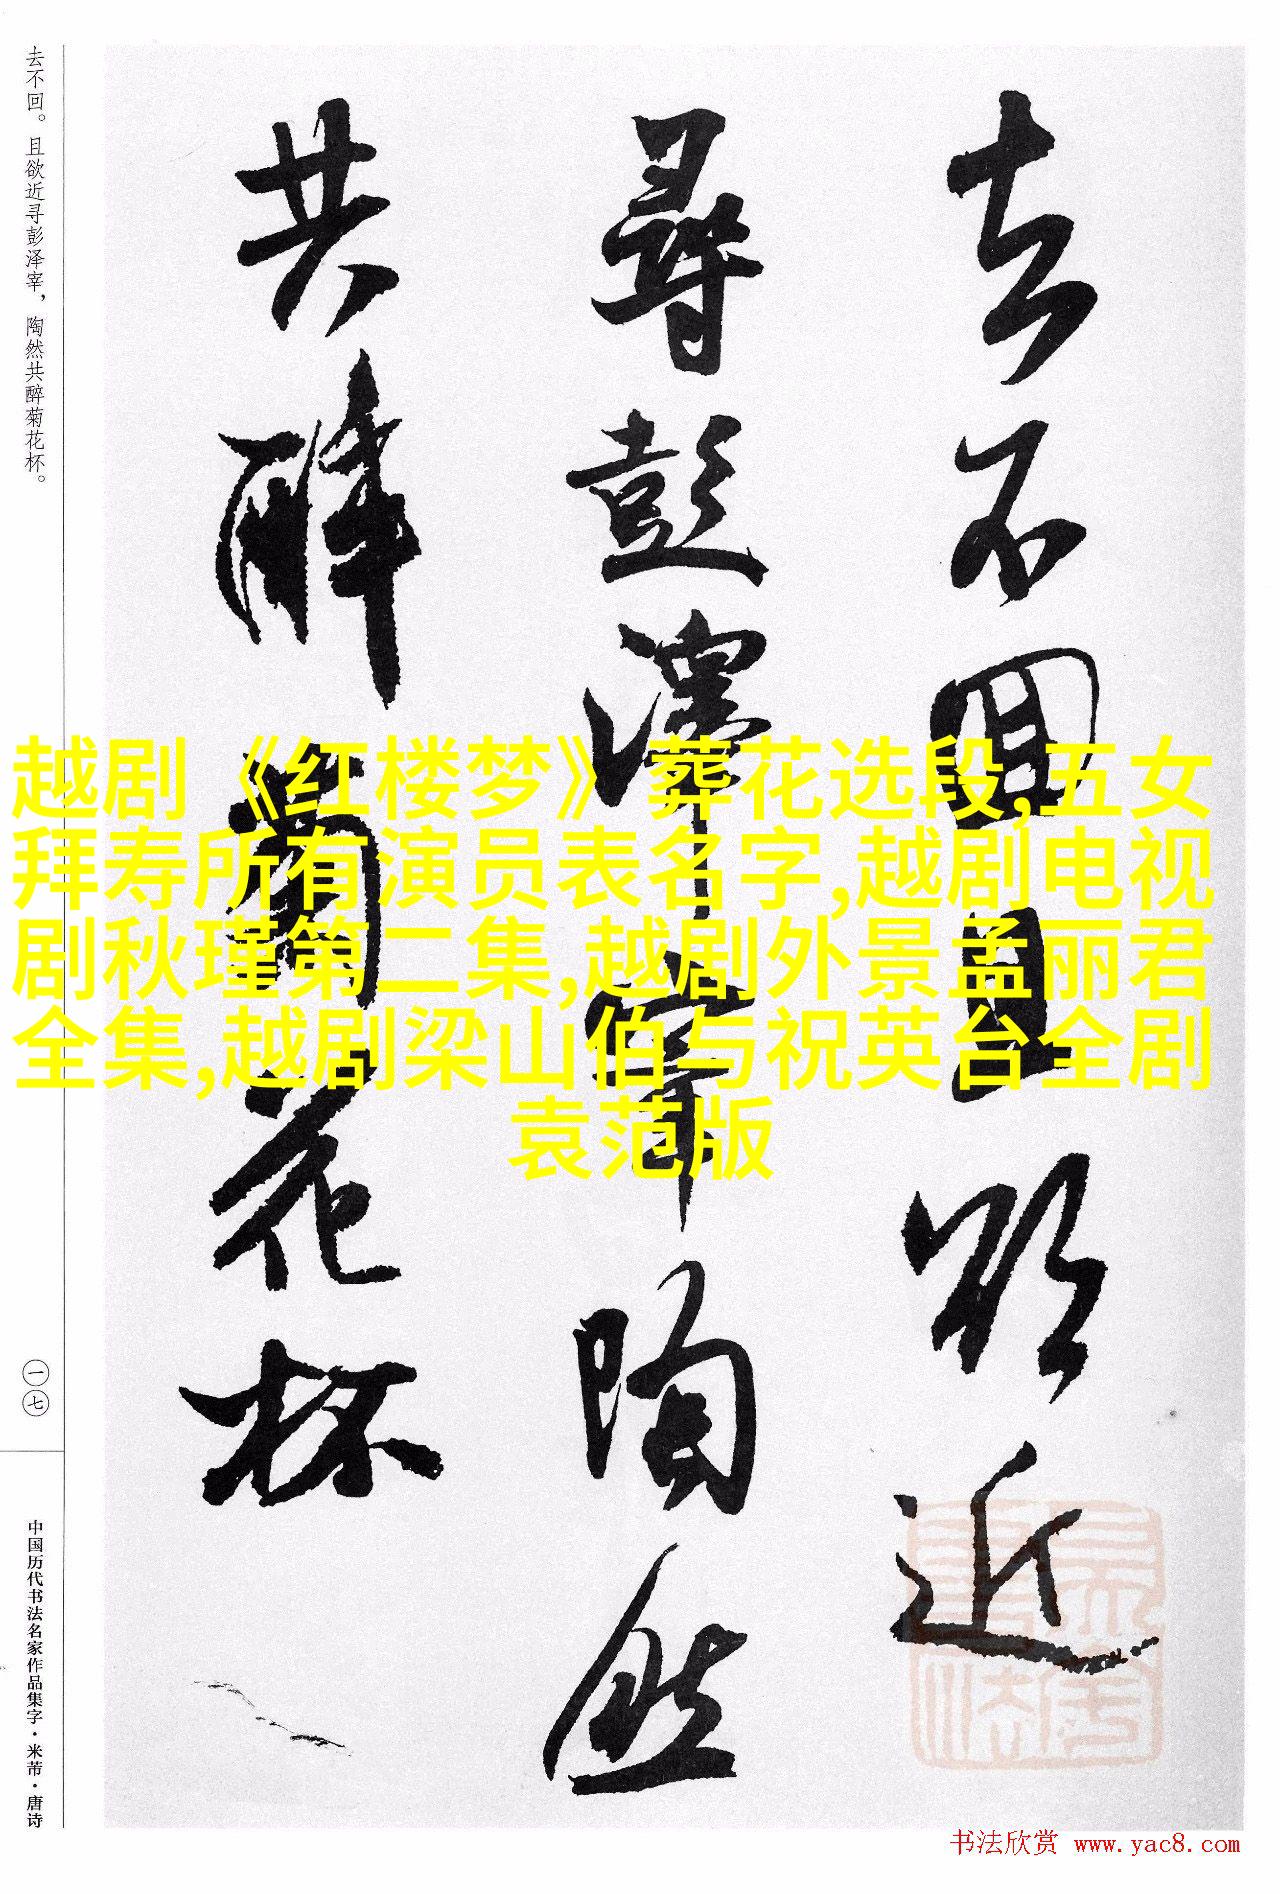 去不回且欲近
尋彭澤宰陶然
共醉菊花杯
去不回。且欲近寻彭泽宰，陶然共醉菊花杯。
一七
中国历代书法名家作品集字·米芾·唐诗
越剧《红楼梦》葬花选段,五女
拜寿所有演员表名字,越剧电视
剧秋瑾第二集,越剧外景孟丽君
全集,越剧梁山伯与祝英台全剧
袁范版
书法欣赏 www.yac8.com